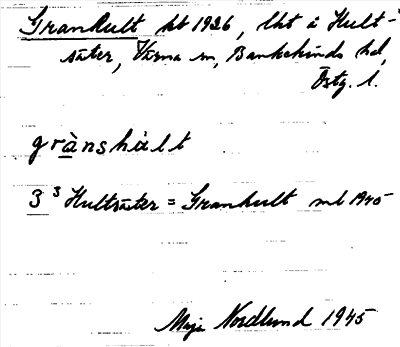 Grankult kb 1926, lht i Hult-
säter, Värna sn, Bankekinds hd,
Östg. l.
grànshùlt
3³ Hultsäter = Granhult ml 1945
Maja Nordlund 1945